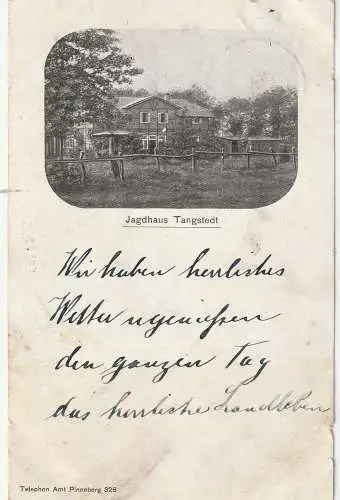 Jagdhaus Tangstedt
Wir haben herrliches
Wetter u genießen
den ganzen Tag
das herrliche Landleben
Telephon Amt Pinneberg 326